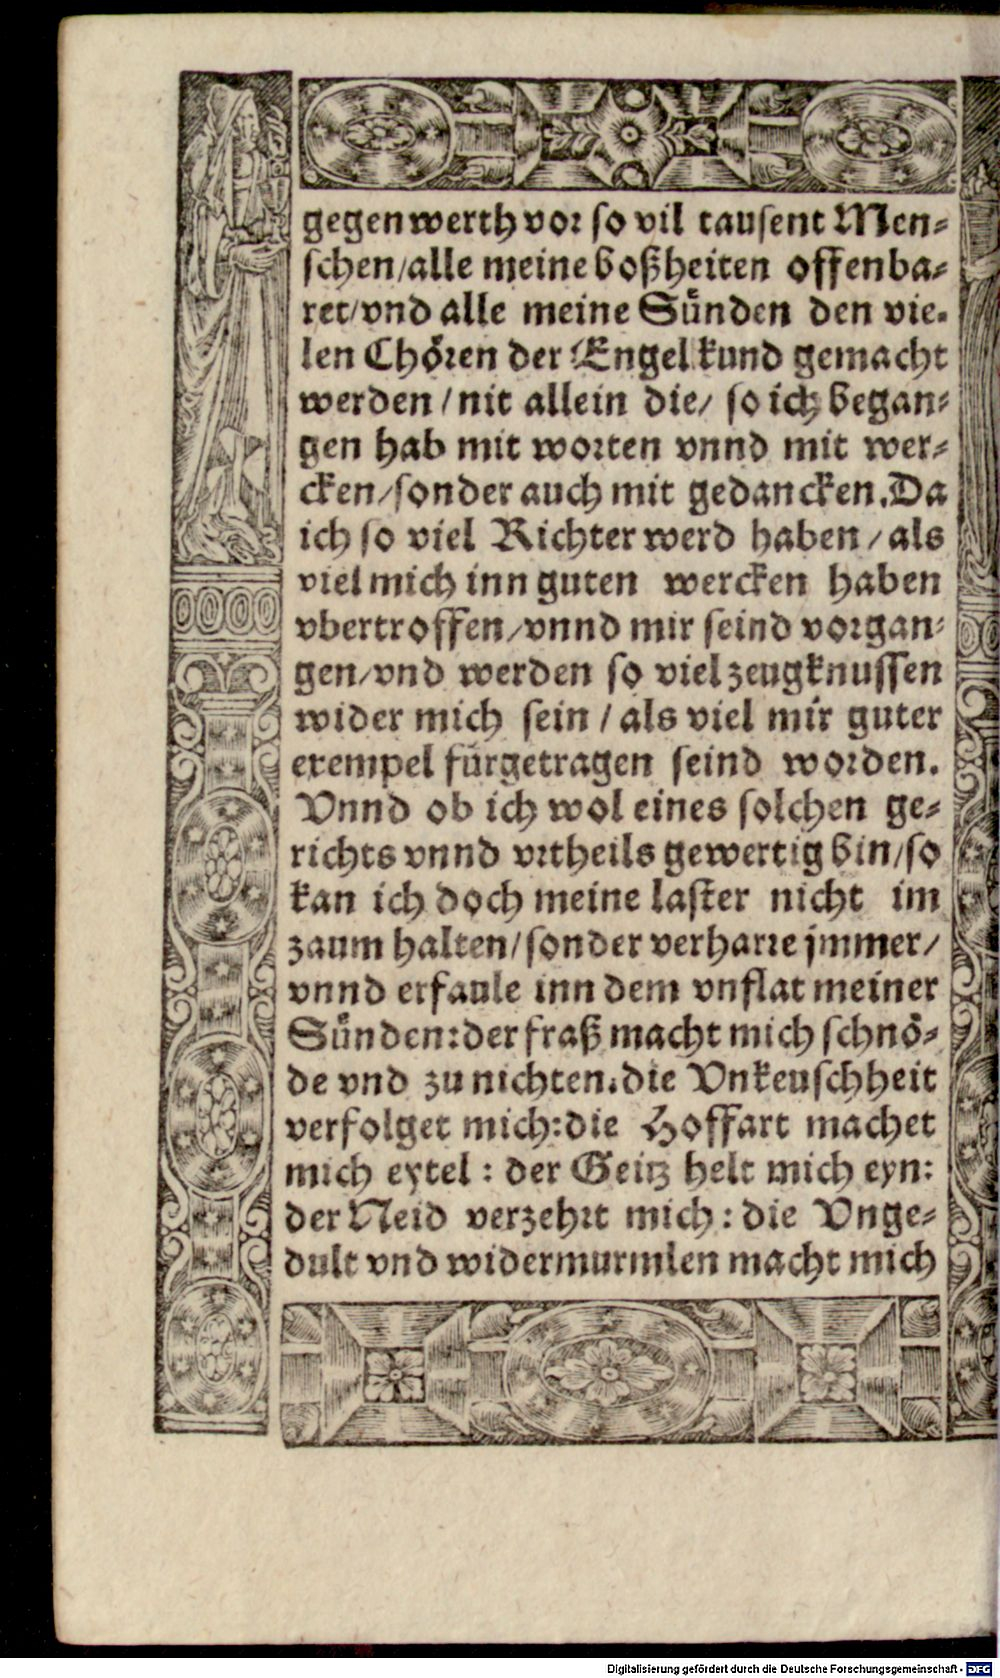 gegenwerth vor so vil tausent Men⸗
schen/alle meine boßheiten offenba⸗
ret/vnd alle meine Sünden den vie⸗
len Chören der Engel kund gemacht
werden / nit allein die/ so ich began⸗
gen hab mit worten vnnd mit wer⸗
cken/sonder auch mit gedancken. Da
ich so viel Richter werd haben / als
viel mich inn guten wercken haben
vbertroffen/vnnd mir seind vorgan⸗
gen/vnd werden so viel zeugknussen
wider mich sein / als viel mir guter
exempel fürgetragen seind worden.
Vnnd ob ich wol eines solchen ge⸗
richts vnnd vrtheils gewertig bin/so
kan ich doch meine laster nicht im
zaum halten/sonder verharre jmmer/
vnnd erfaule inn dem vnflat meiner
Sünden:der fraß macht mich schnö⸗
de vnd zu nichten.die Vnkeuschheit
verfolget mich:die Hoffart machet
mich eytel : der Geitz helt mich eyn:
der Neid verzehrt mich : die Vnge⸗
dult vnd widermurmlen macht mich
Digitalisierung gefördert durch die Deutsche Forschungsgemeinschaft - DFG